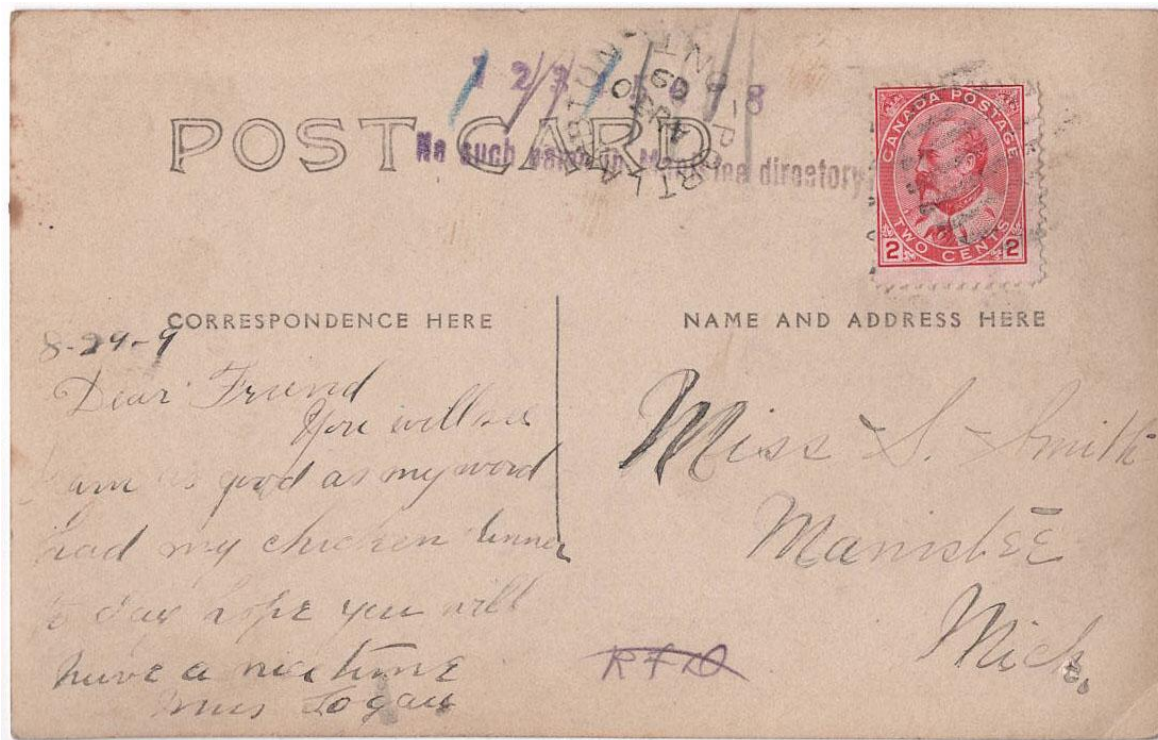 1 2 3 4 5 6 7 8
POST CARD
No such name in Manistee directory
PORTLAND STATION ONT
AU 30
09
CANADA POSTAGE
TWO CENTS
2 2
CORRESPONDENCE HERE
NAME AND ADDRESS HERE
8-29-9
Dear Friend
You will see
I am as good as my word
had my chicken dinner
to day hope you will
have a nice time
Mrs Logan
Miss S. Smith
Manistee
Mich.
RFD